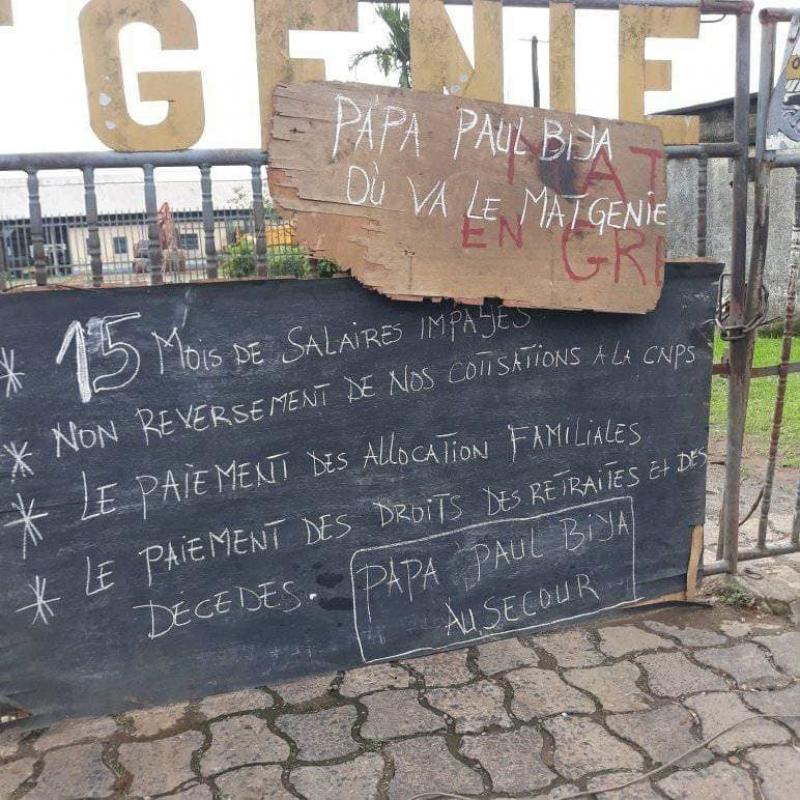 GENIE
PAPA PAUL BIYA
OÙ VA LE MATGENIE
MAT
EN GRE
* 15 MOIS DE SALAIRES IMPAYES
* NON REVERSEMENT DE NOS COTISATIONS A LA CNPS
* LE PAIEMENT DES ALLOCATION FAMILIALES
* LE PAIEMENT DES DROITS DES RETRAITES ET DES
DECEDES.
PAPA PAUL BIYA
AU SECOUR